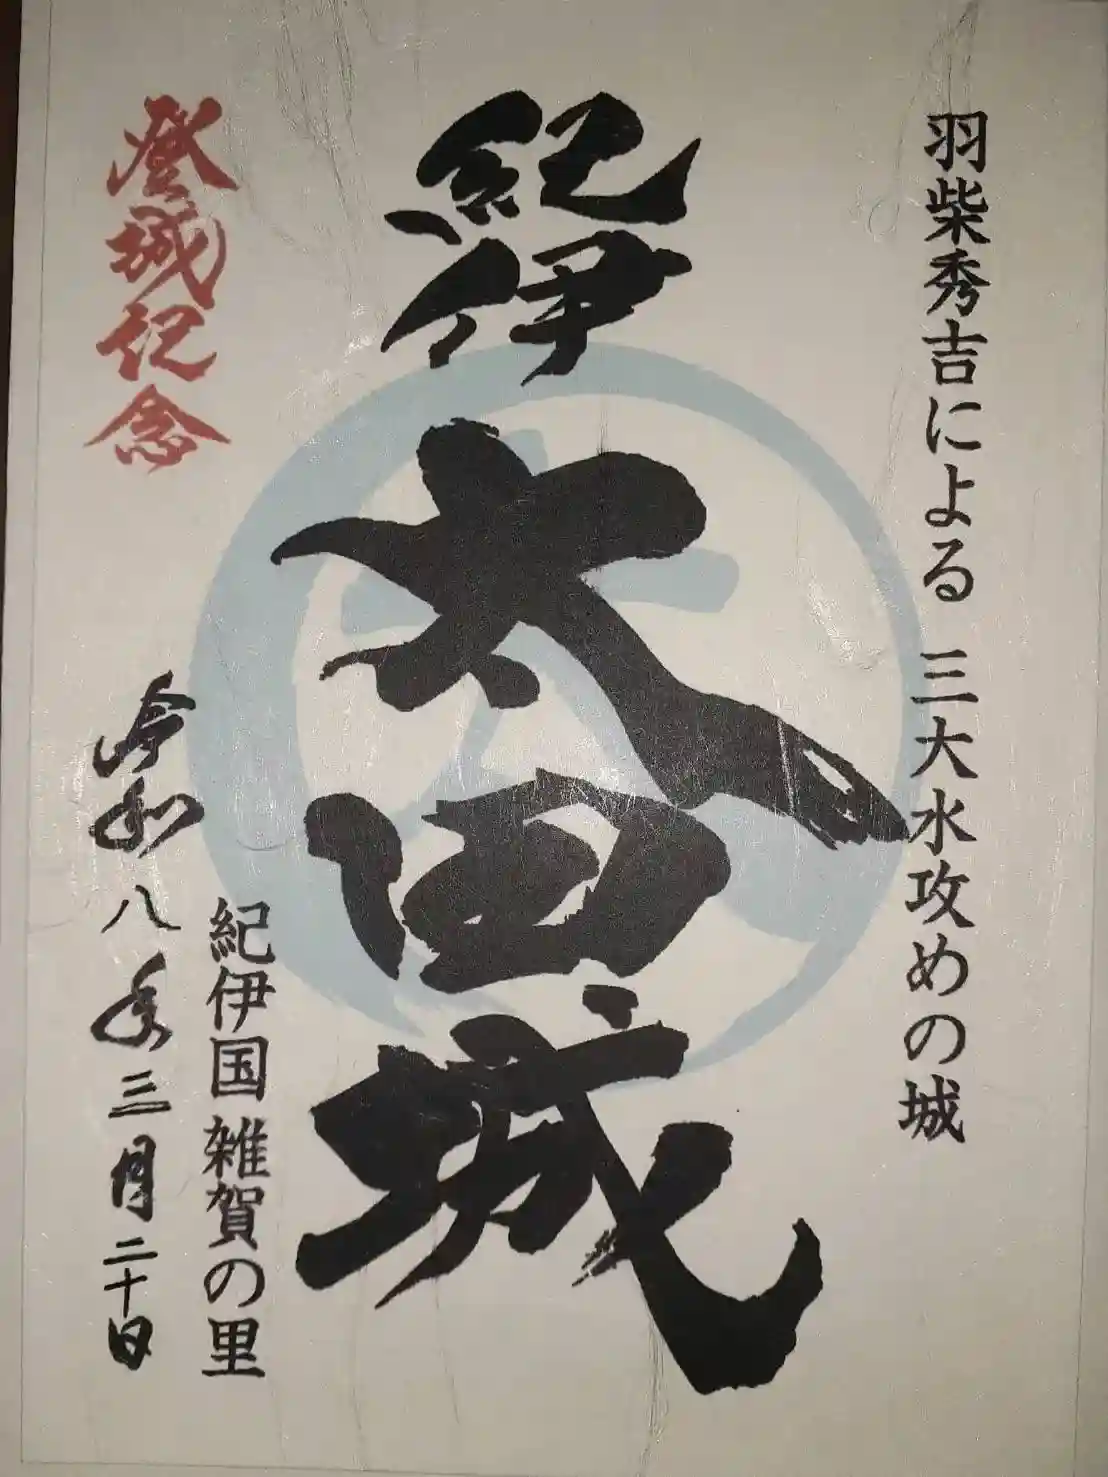 羽柴秀吉による 三大水攻めの城
紀伊
太田城
登城記念
紀伊国 雑賀の里
令和八年三月二十日